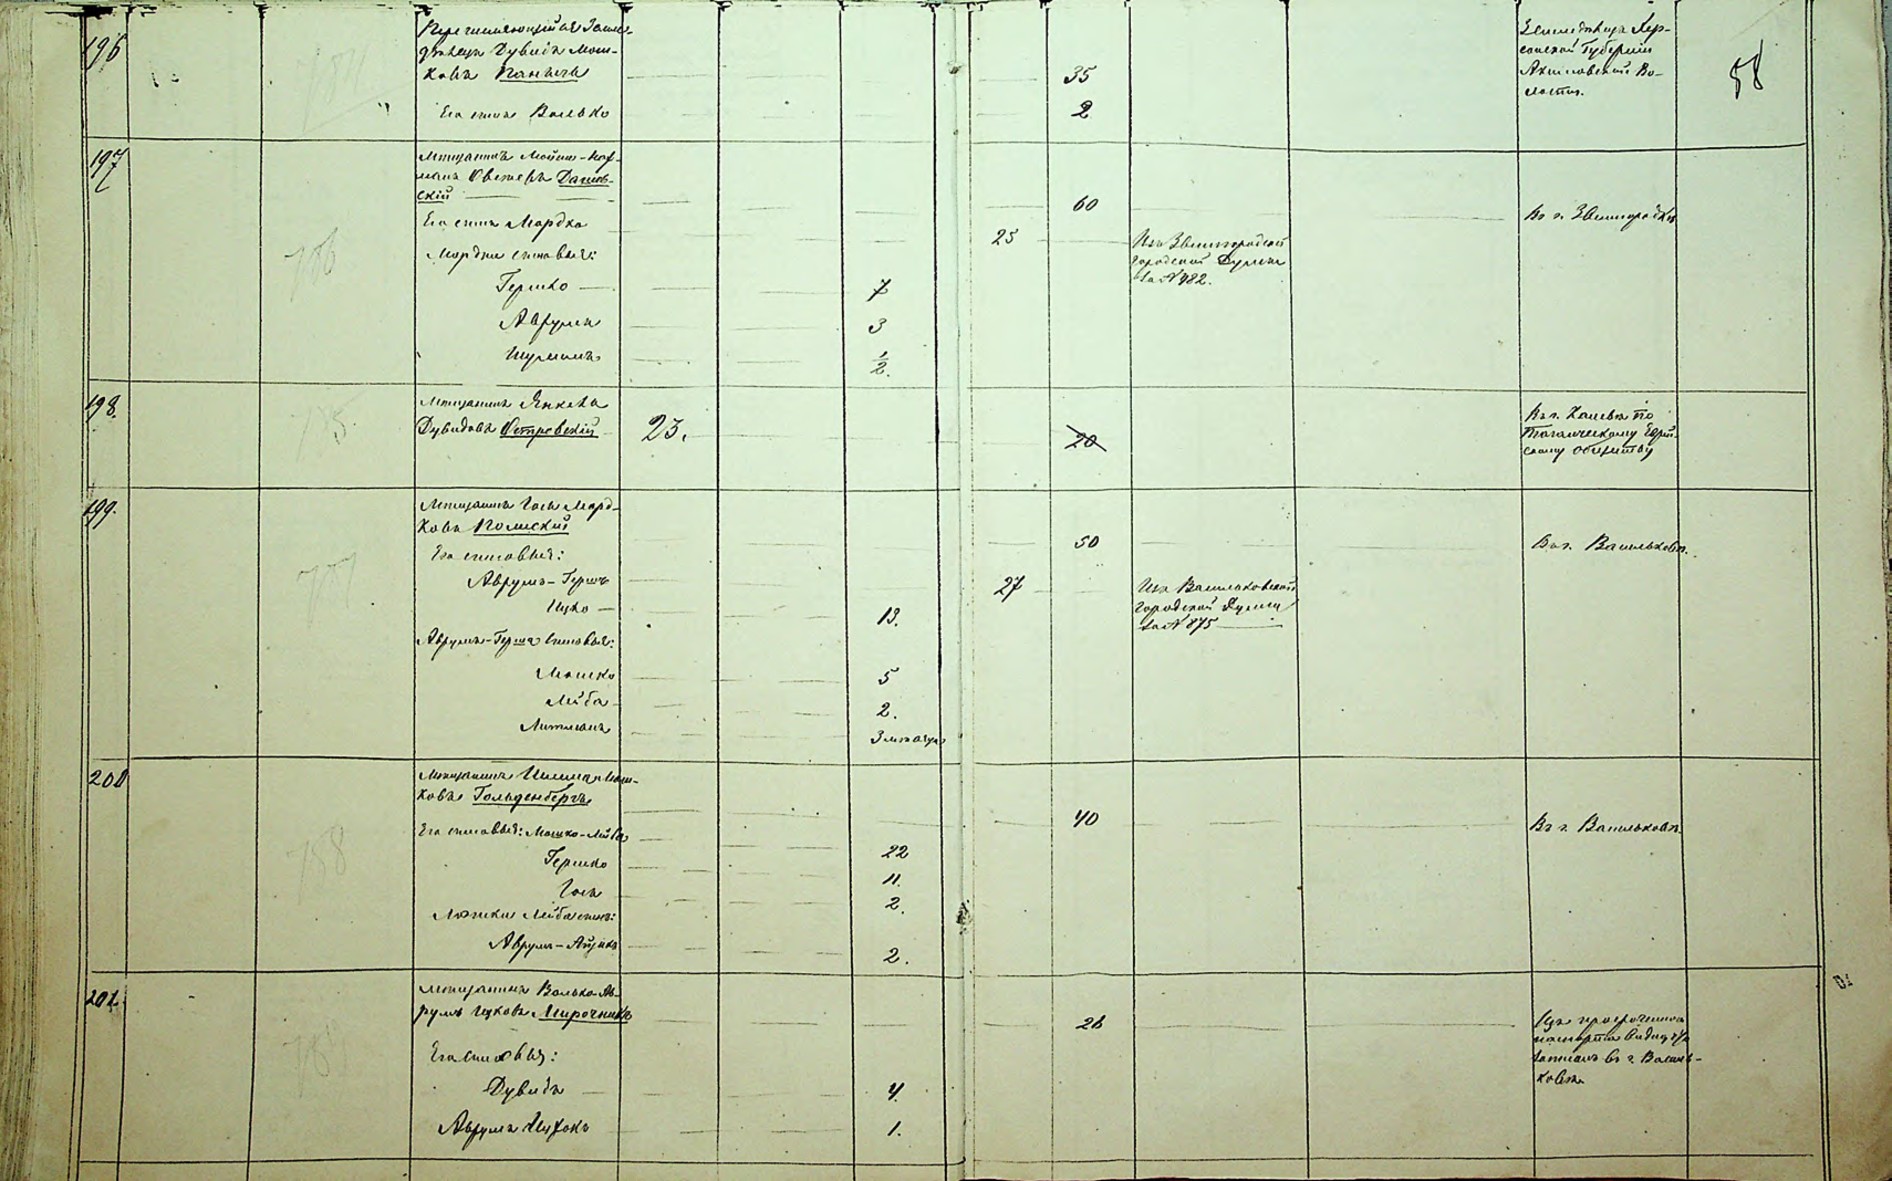 196
Землѣ-
дѣлецъ Дувидъ Мош-
ковъ Паничъ
35
Земледѣлецъ Хер-
сонской Губерніи
Во-
лости.
58
Его сынъ Волько
2
197
Мѣщанинъ Мошко-Нах-
манъ Дашев-
скій
60
Въ г. Звенигородкѣ
Его сынъ Мордко
25
Изъ Звенигородской
городской Думы
за № 482.
186
Мордки сыновья:
Гершко
7
Аврумъ
3
Шулимъ
1/2.
198.
185.
Мѣщанинъ Янкель
Дувидовъ Островскій
23.
20
Въ г. Каневѣ по
Еврей-
скому обществу
199.
187
Мѣщанинъ Іось Морд-
ковъ Полискій
50
Въ г. Васильковѣ.
Его сыновья:
Аврумъ-Гершъ
27
Изъ Васильковской
городской Думы
за № 875
Ицко
13.
Аврумъ-Герша сыновья:
Мошко
5
Лейба
2.
3 мѣсяца
200
188
Мѣщанинъ Мош-
ковъ Гольденбергъ
40
Въ г. Васильковѣ
Его сыновья: Мошко-Лейба
22
Гершко
11.
Іось
2.
Мошки Лейба сынъ:
Аврумъ-Айзикъ
2.
201.
189
Мѣщанинъ Волько-Ав-
румъ Ицковъ Мирочникъ
28
Изъ просроченного
паспорта видно, что
записанъ въ г. Василь-
ковѣ
Его сыновья:
Дувидъ
4.
Аврумъ
1.